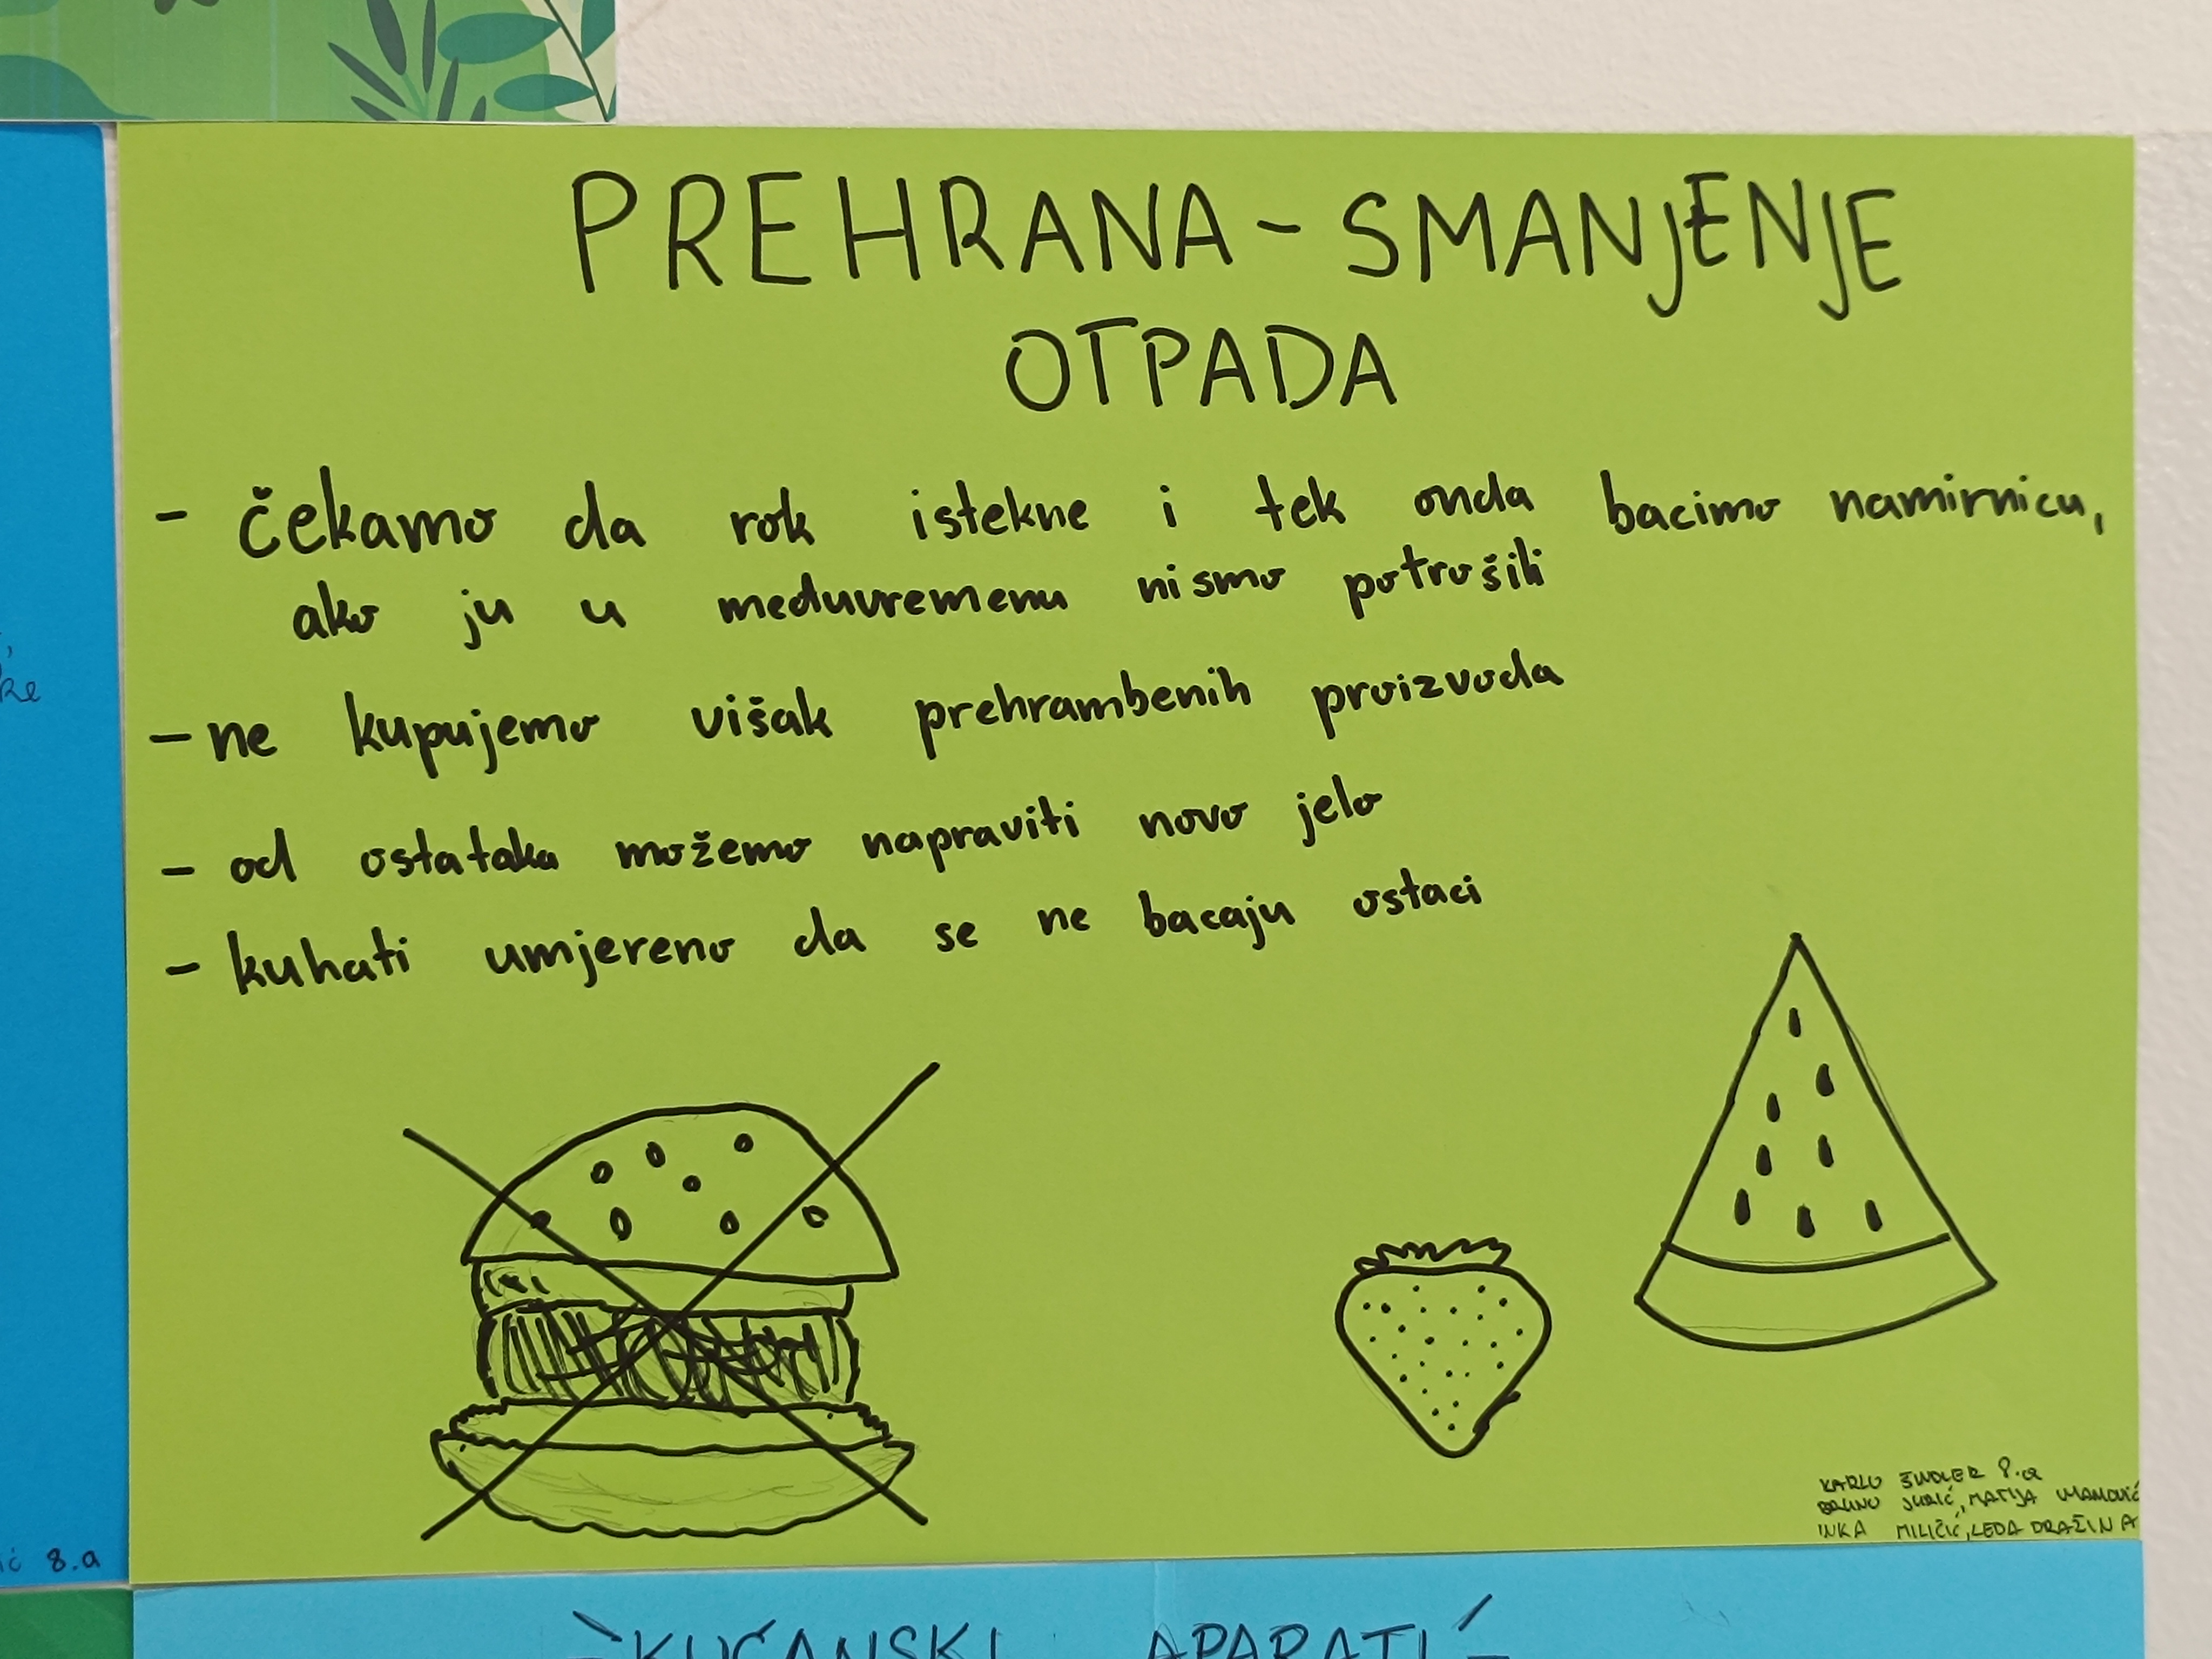 PREHRANA - SMANJENJE
OTPADA
- čekamo da rok istekne i tek onda bacimo namirnicu,
ako ju u međuvremenu nismo potrošili
- ne kupujemo višak prehrambenih proizvoda
- od ostataka možemo napraviti novo jelo
- kuhati umjereno da se ne bacaju ostaci
KARLO 8.a
BRUNO JURIĆ, MATIJA
INKA MILIČIĆ, LEDA DRAŽINA
8.a
KUĆANSKI APARATI